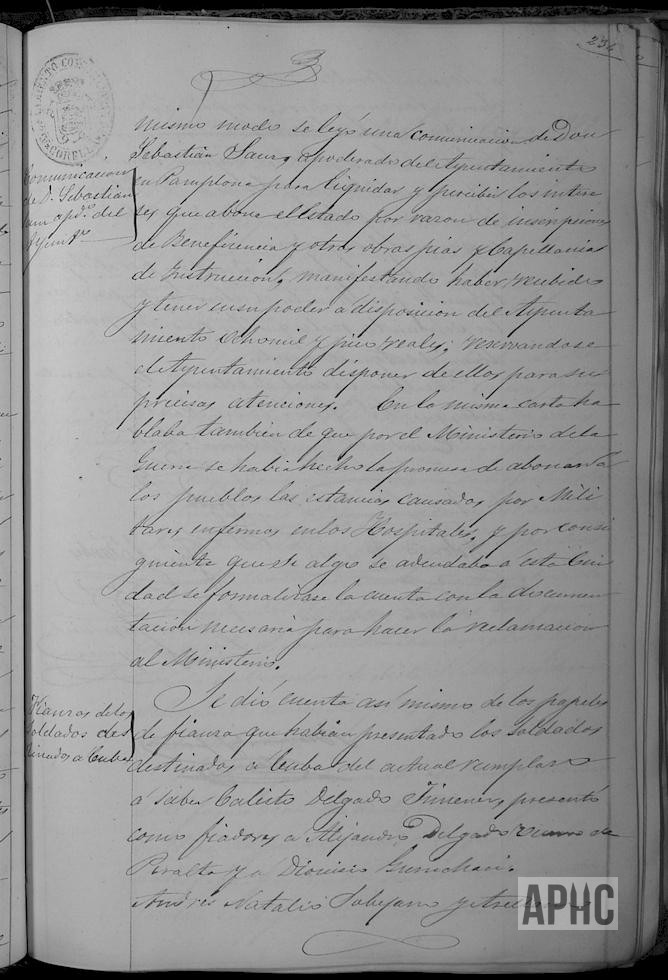 234
AYUNTAMIENTO CONSTITUCIONAL
CORELLA
mismo modo se leyó una comunicacion de Don
Sebastian Saura, apoderado del Ayuntamiento
en Pamplona para liquidar y percibir los intere
ses que abona el Estado por razon de inscripciones
de Beneficencia y otras obras pias y Capellanias
de Instruccion, manifestando haber recibido
y tener en su poder á disposicion del Ayunta
miento ocho mil y pico reales; reservandose
el Ayuntamiento disponer de ellos para sus
precisas atenciones. En la misma carta ha
blaba tambien de que por el Ministerio de la
Guerra se habia hecho la promesa de abonar á
los pueblos las estancias causadas por Mili
tares enfermos en los Hospitales, y por consi
guiente que si algo se adeudaba á esta Ciu
dad se formalizase la cuenta con la documen
tacion necesaria para hacer la reclamacion
al Ministerio.
Se dió cuenta así mismo de los papeles
de fianza que habian presentado los soldados
destinados á Cuba del actual reemplazo
á saber Calisto Delgado Jimenez, presentó
como fiadores á Alejandro Delgado vecino de
Peralta y á Dionisio
Andrés Natalio Sobejano y
Comunicacion
de D. Sebastian
apdo. del
Ayunto.
Fianzas de los
soldados des
tinados á Cuba
APHC